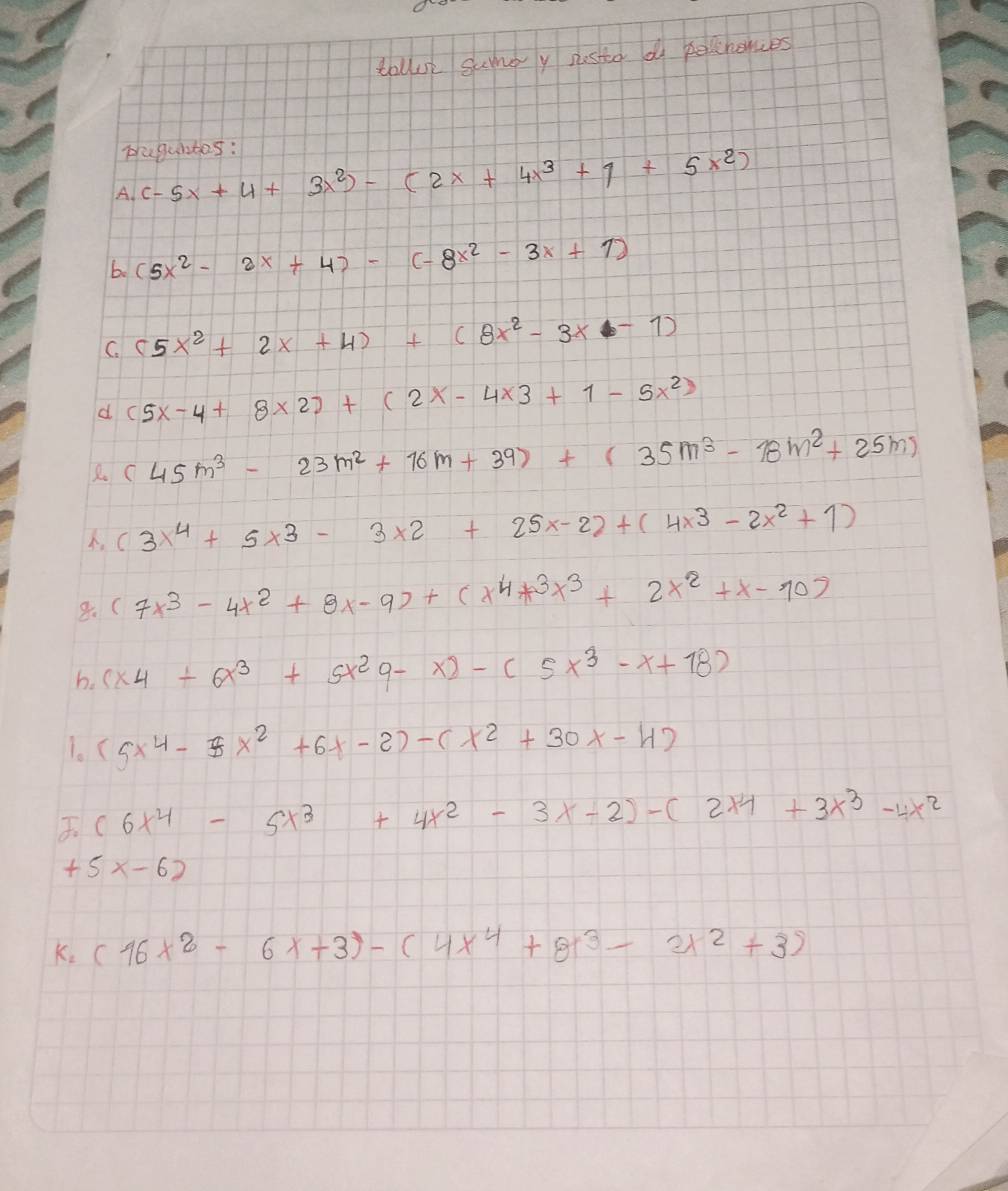 taller suma y resta de polinomios
preguntas:
A. (-5x + 4 + 3x²) - (2x + 4x³ + 1 + 5x²)
b. (5x² - 2x + 4) - (-8x² - 3x + 1)
c. (5x² + 2x + 4) + (8x² - 3x - 1)
d (5x - 4 + 8x2) + (2x - 4x3 + 1 - 5x²)
e. (45m³ - 23m² + 16m + 39) + (35m³ - 18m² + 25m)
f. (3x⁴ + 5x3 - 3x2 + 25x - 2) + (4x3 - 2x² + 1)
g. (7x³ - 4x² + 8x - 9) + (x⁴ + 3x³ + 2x² + x - 10)
h. (x4 + 6x³ + 5x² 9 - x) - (5x³ - x + 18)
I. (5x⁴ - 5x² + 6x - 2) - (x² + 30x - 4)
J. (6x⁴ - 5x³ + 4x² - 3x - 2) - (2x4 + 3x³ - 4x²
+ 5x - 6)
K. (16x² - 6x + 3) - (4x⁴ + 8x³ - 2x² + 3)